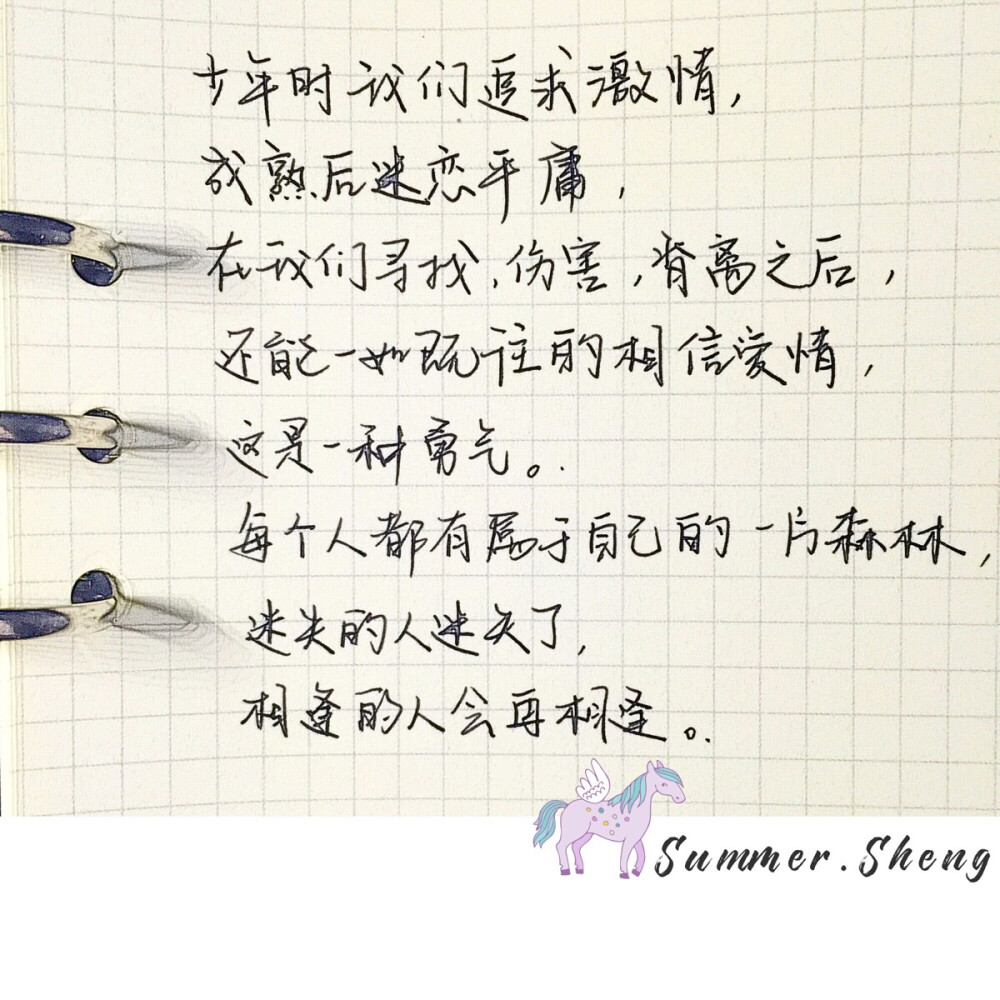 少年时我们追求激情，
成熟后迷恋平庸，
在我们寻找，伤害，背离之后，
还能一如既往的相信爱情，
这是一种勇气。
每个人都有属于自己的一片森林，
迷失的人迷失了，
相逢的人会再相逢。
Summer.Sheng